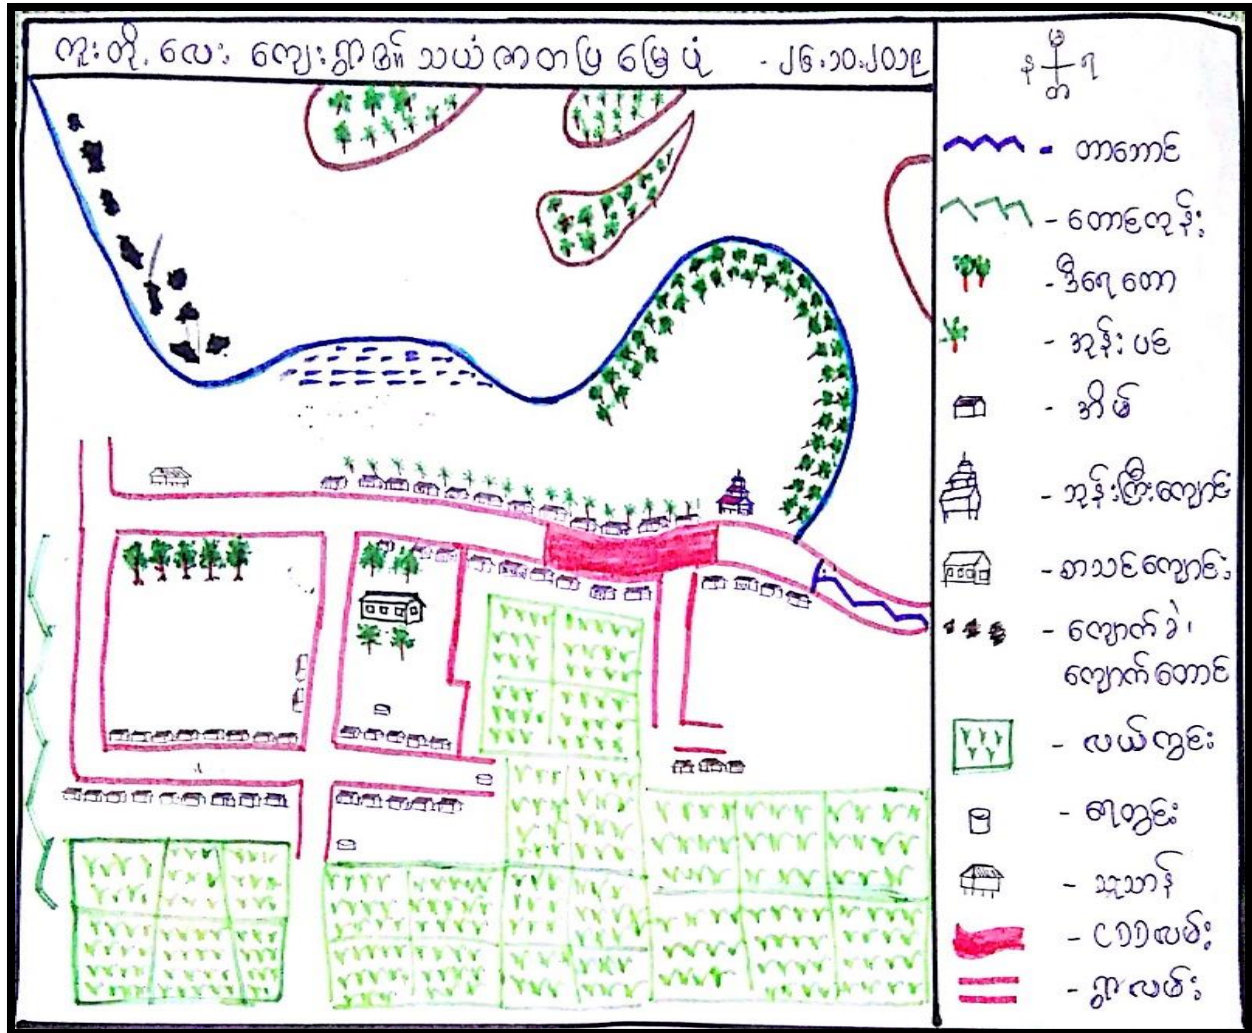 ကူးတို့လေး ကျေးရွာ၏ သယံဇာတပြ မြေပုံ - ၂၆.၁၀.၂၀၁၉
မြ
န ရ
တ
- တာဘောင်
- တောင်ကုန်း
- ဒီရေတော
- အုန်းပင်
- အိမ်
- ဘုန်းကြီးကျောင်း
- စာသင်ကျောင်း
- ကျောက်ခဲ၊
ကျောက်တောင်
- လယ်ကွင်း
- ရေတွင်း
- သုသာန်
- CDDလမ်း
- ရွာလမ်း